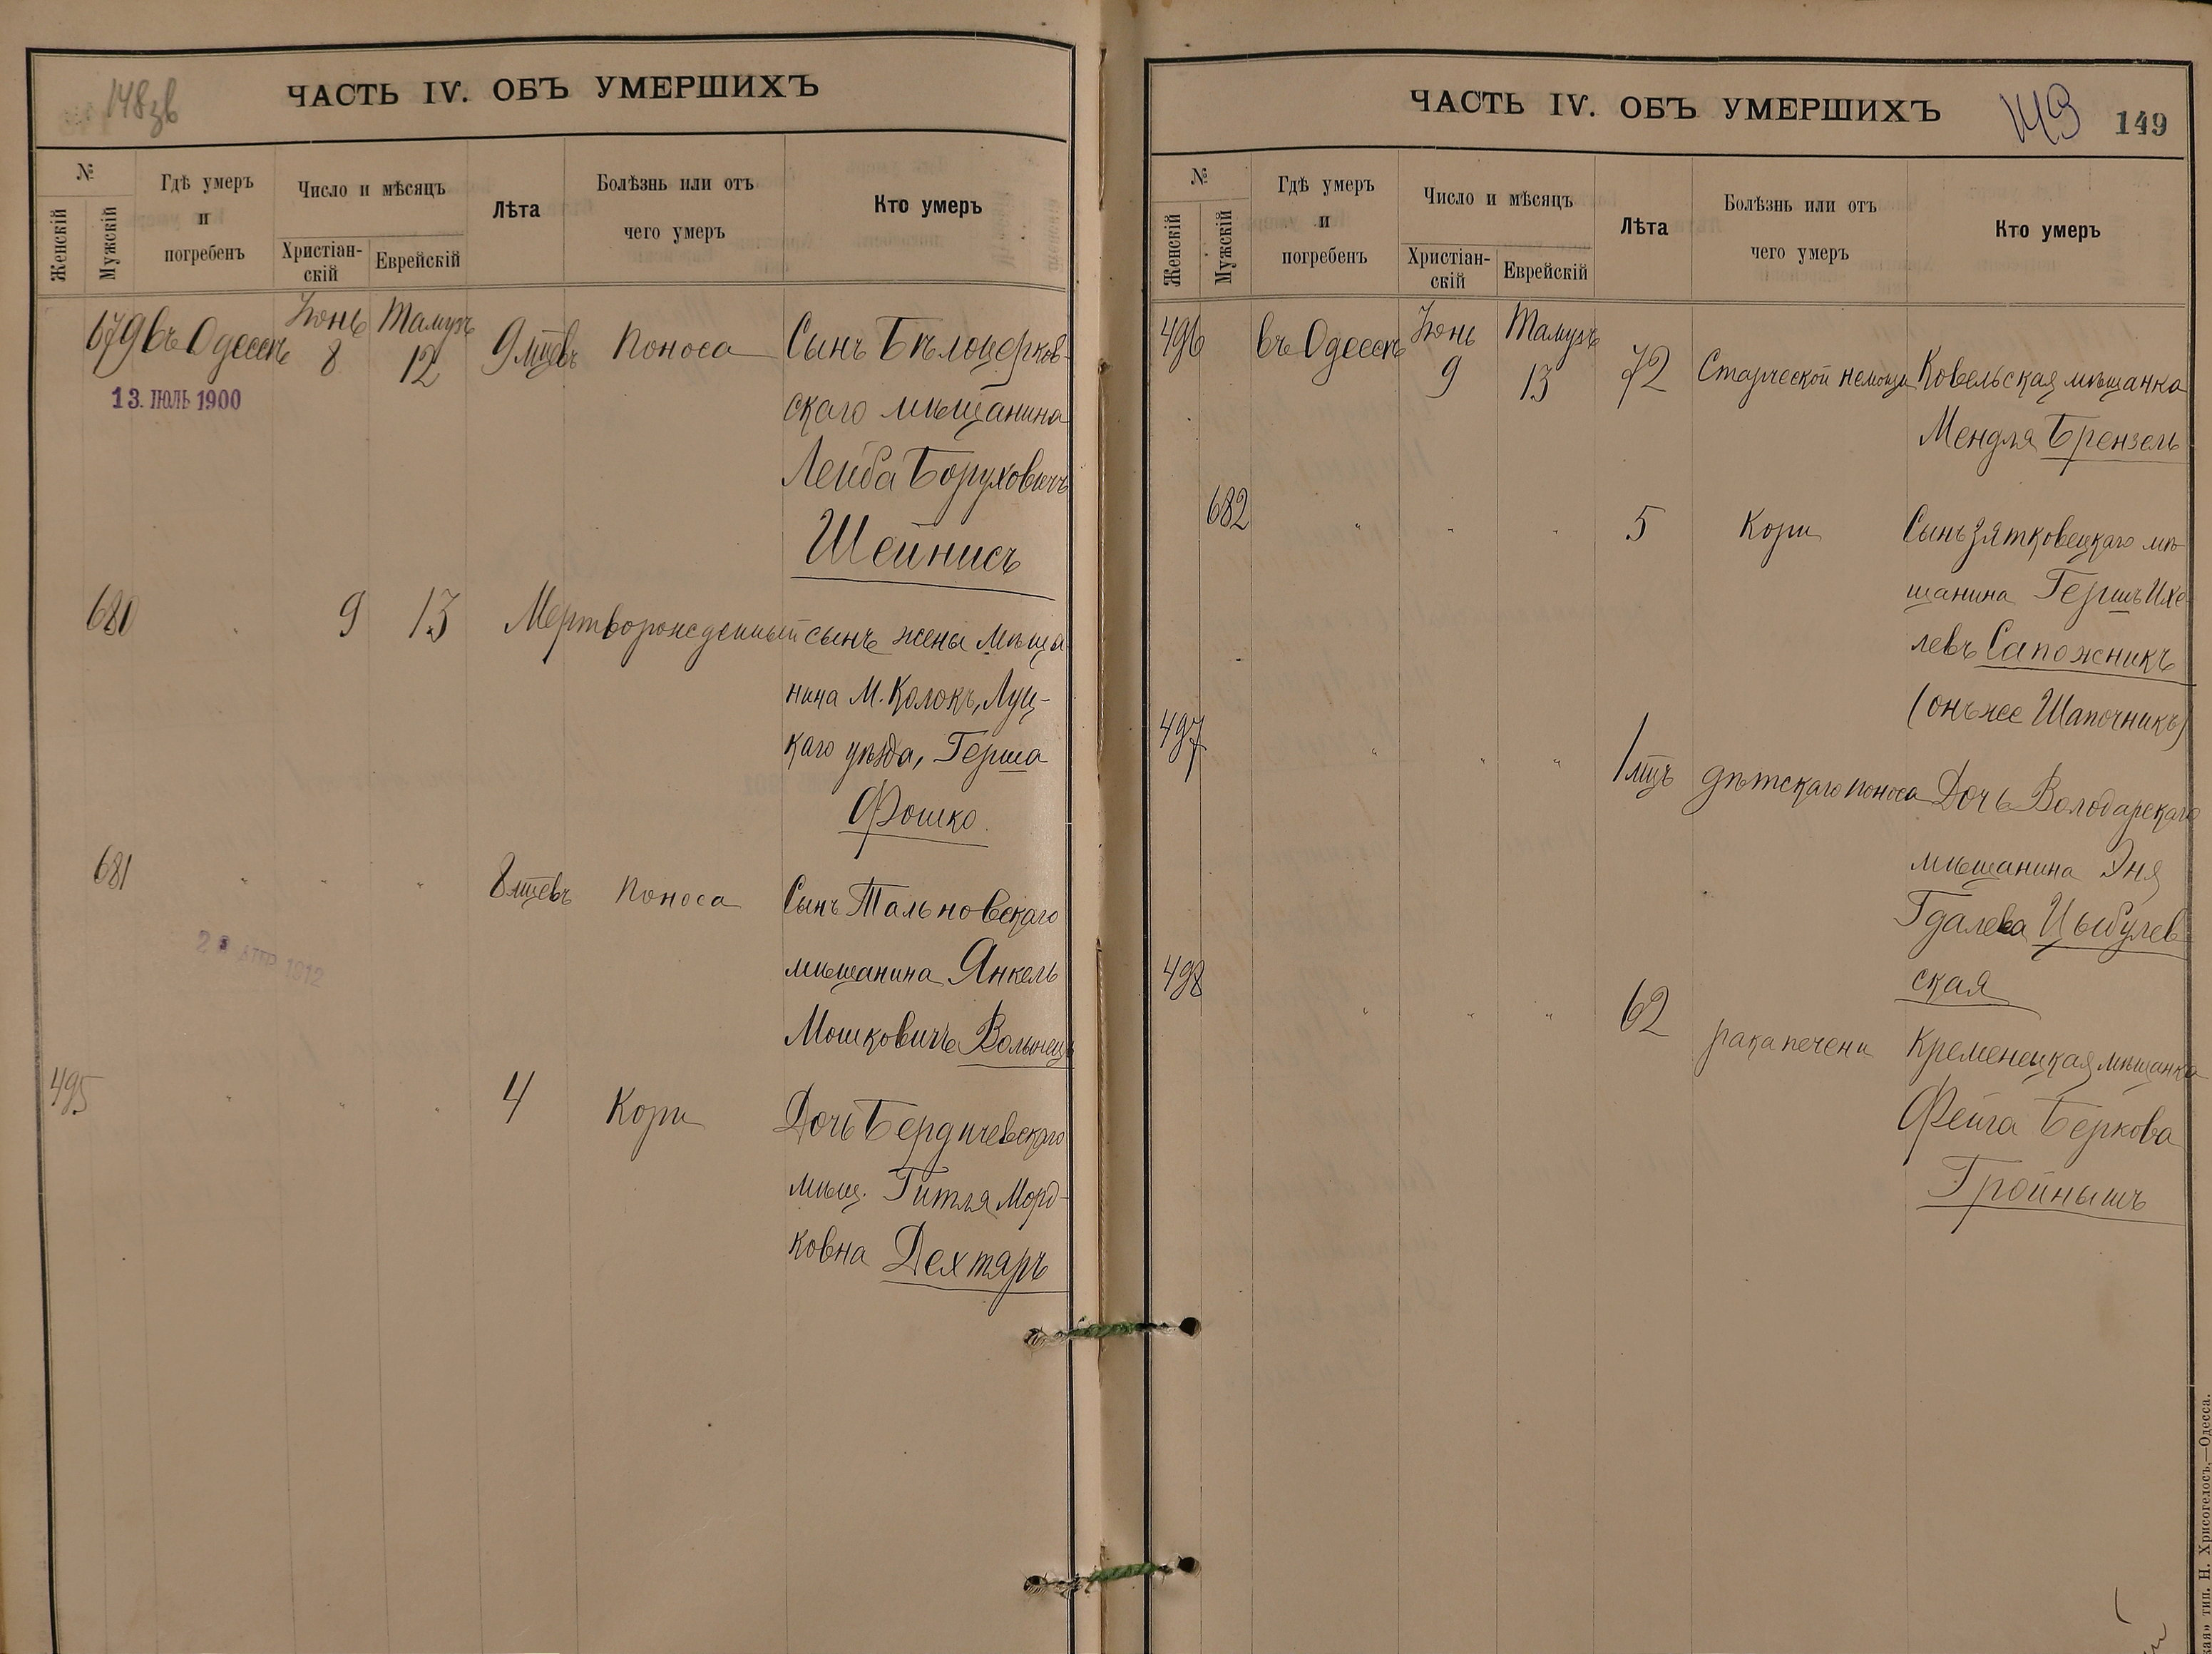 148зв
ЧАСТЬ IV. ОБЪ УМЕРШИХЪ
№
Женскій
Мужскій
Гдѣ умеръ
и
погребенъ
Число и мѣсяцъ
Христіан-
скій
Еврейскій
Лѣта
Болѣзнь или отъ
чего умеръ
Кто умеръ
679 въ Одессѣ Іюнь 8 Тамузъ 12 9 мцевъ Поноса Сынъ Бѣлоцерков-
13. ІЮЛЬ 1900
скаго мѣщанина
Лейба Боруховичъ
Шейнисъ
680 " 9 13 Мертворожденный сынъ жены мѣща-
нина М. Колокъ, Луц-
каго уѣзда, Герша
Фошко.
681 " " " 8 мцевъ Поноса Сынъ Тальновскаго
мѣщанина Янкель
Мошковичъ Волынецъ
495 " " " 4 Кори Дочь Бердичевскаго
мѣщ. Гитля Морд-
ковна Дехтяръ
ЧАСТЬ IV. ОБЪ УМЕРШИХЪ
149
149
№
Женскій
Мужскій
Гдѣ умеръ
и
погребенъ
Число и мѣсяцъ
Христіан-
скій
Еврейскій
Лѣта
Болѣзнь или отъ
чего умеръ
Кто умеръ
496 въ Одессѣ Іюнь 9 Тамузъ 13 72 Старческой немощи Ковельская мѣщанка
Мендля Брензель
682 " " " 5 Кори Сынъ Зятковецкаго мѣ-
щанина Гершъ Ихе-
левъ Сапожникъ
(онъ же Шапочникъ)
497 " " " 1 мцъ дѣтскаго поноса Дочь Володарскаго
мѣщанина Эня
Гдалева Цыбулев-
ская
498 " " " 62 рака печени Кременецкая мѣщанка
Фейга Беркова
Гройнышъ
тип. Н. Хрисогелосъ,—Одесса.